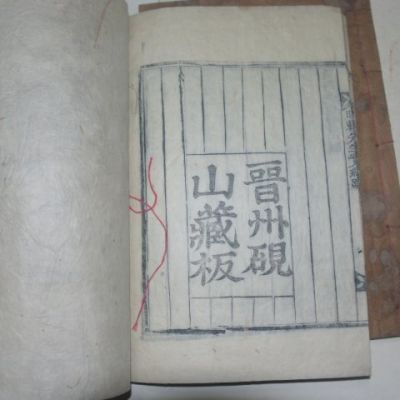 晋州硯
山藏板